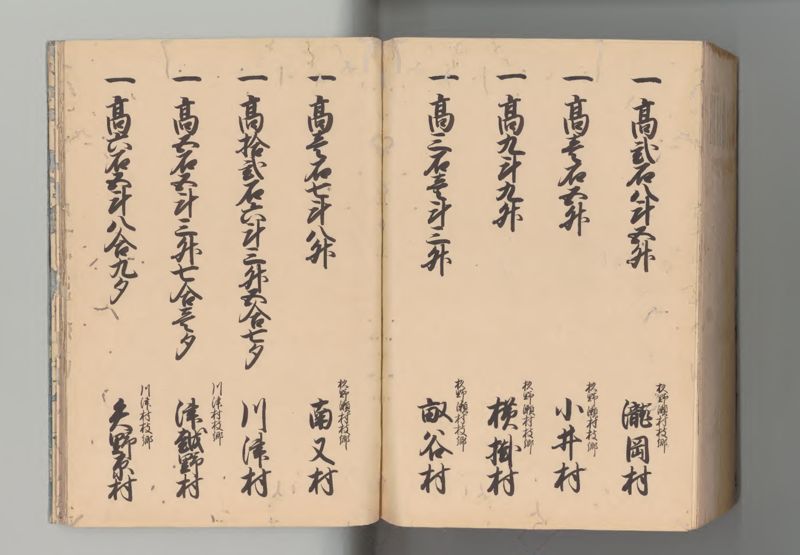 一 高弐石八斗五升
杦野瀬村枝郷
瀧岡村
一 高壱石五升
杦野瀬村枝郷
小井村
一 高九斗九升
杦野瀬村枝郷
横掛村
一 高三石壱斗三升
杦野瀬村枝郷
畝谷村
一 高壱石七斗八升
杦野瀬村枝郷
南又村
一 高拾弐石六斗三升五合七夕
川津村
一 高五石五斗三升七合壱夕
川津村枝郷
津越野村
一 高六石五斗八合九夕
川津村枝郷
矢野原村